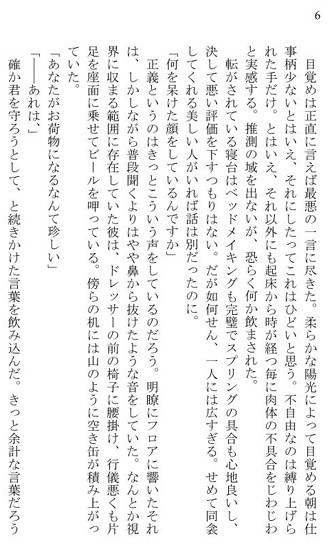 6
　目覚めは正直に言えば最悪の一言に尽きた。柔らかな陽光によって目覚める朝は仕
事柄少ないとはいえ、それにしたってこれはひどいと思う。不自由なのは縛り上げら
れた手だけ。とはいえ、それ以外にも起床から時が経つ毎に肉体の不具合をじわじわ
と実感する。推測の域を出ないが、恐らく何か飲まされた。
　転がされている寝台はベッドメイキングも完璧でスプリングの具合も心地良いし、
決して悪い評価を下すつもりはない。だが如何せん、一人には広すぎる。せめて同衾
してくれる美しい人がいれば話は別だったのに。
「何を呆けた顔をしているんですか」
　正義というのはきっとこういう声をしているのだろう。明瞭にフロアに響いたそれ
は、しかしながら普段聞くよりはやや鼻から抜けたような音をしていた。なんとか視
界に収まる範囲に存在していた彼は、ドレッサーの前の椅子に腰掛け、行儀悪くも片
足を座面に乗せてビールを呷っている。傍らの机には山のように空き缶が積み上がっ
ていた。
「あなたがお荷物になるなんて珍しい」
「――あれは、」
　確か君を守ろうとして、と続きかけた言葉を飲み込んだ。きっと余計な言葉だろう